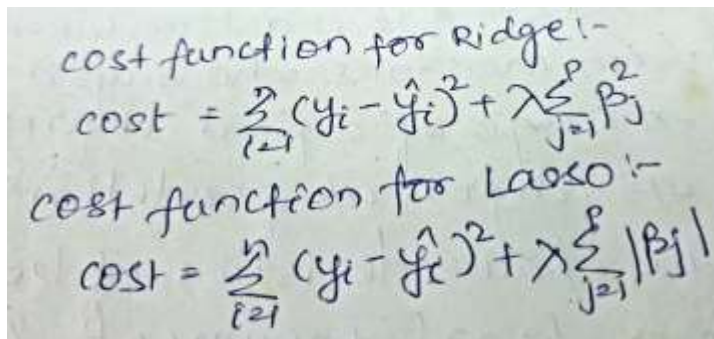 cost function for Ridge:-
cost = ∑ᵢ₌₁ⁿ (yᵢ - ŷᵢ)² + λ∑ⱼ₌₁ᵖ βⱼ²
cost function for Lasso:-
cost = ∑ᵢ₌₁ⁿ (yᵢ - ŷᵢ)² + λ∑ⱼ₌₁ᵖ |βⱼ|